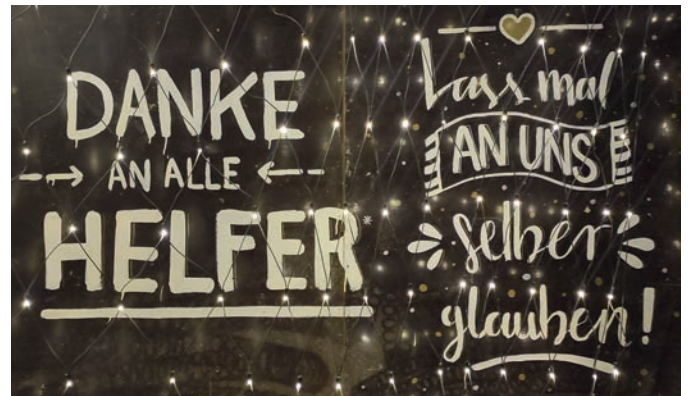 DANKE
AN ALLE
HELFER*
Lass mal
AN UNS
selber
glauben!